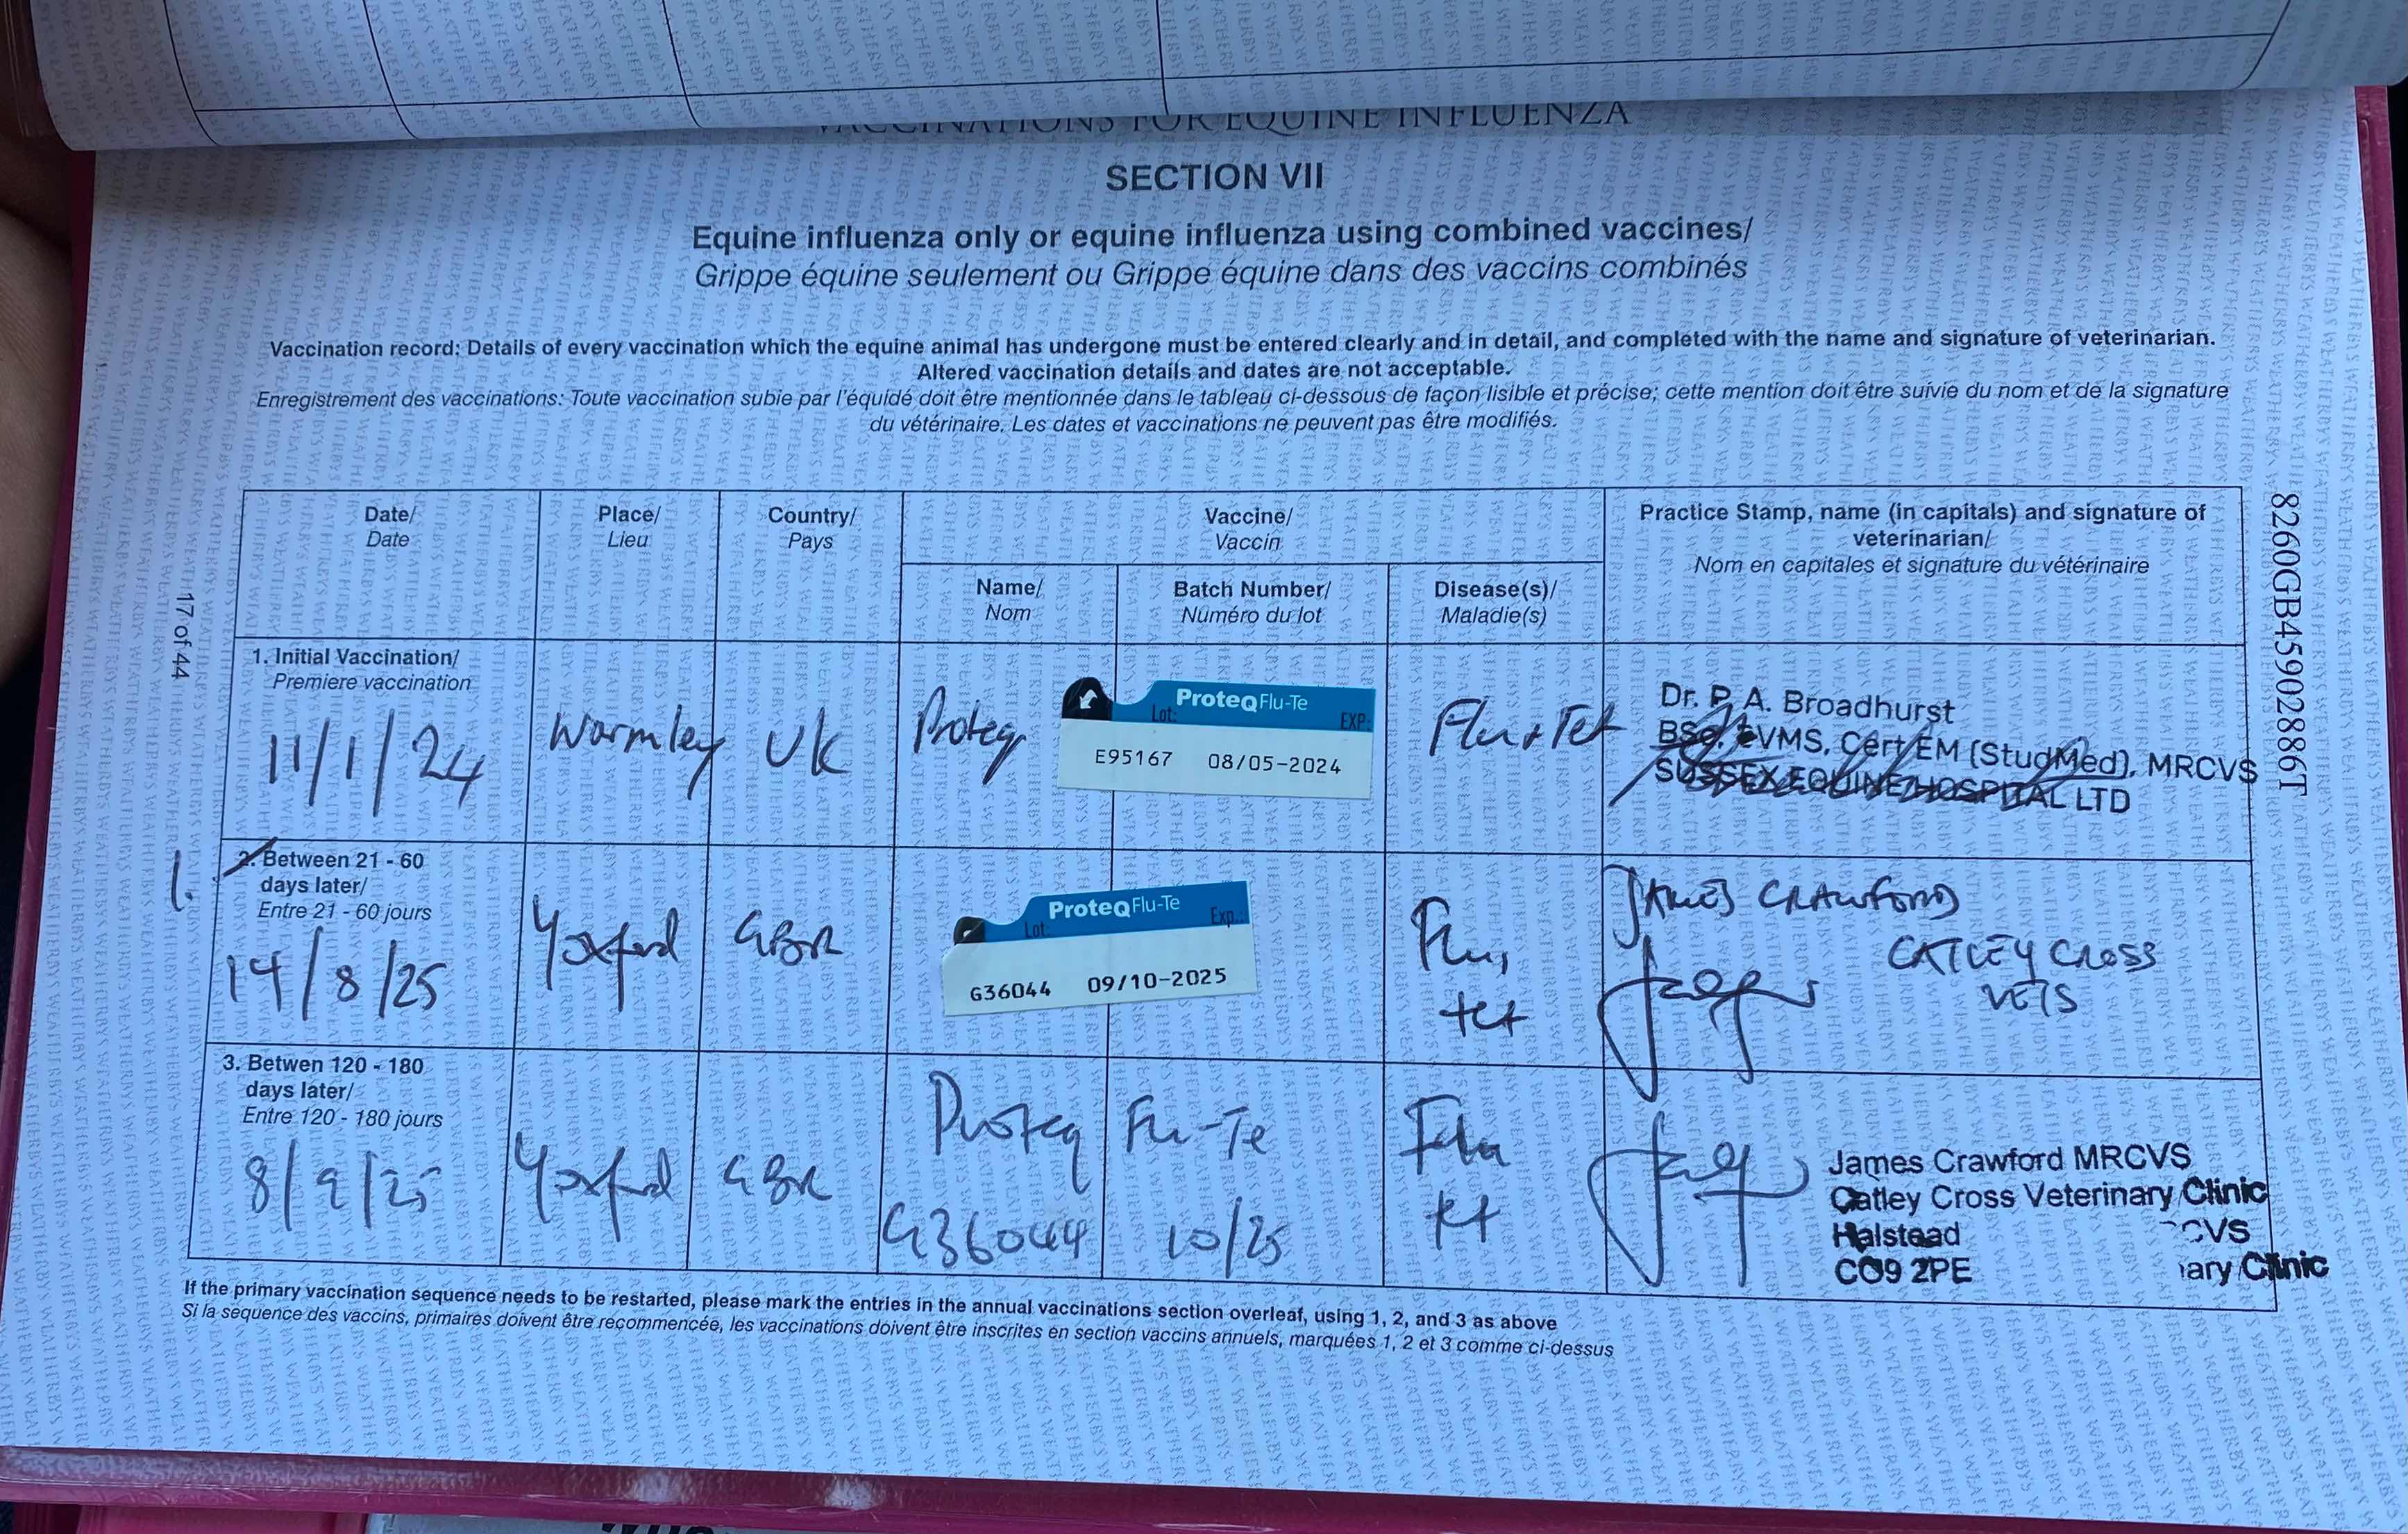 VACCINATIONS FOR EQUINE INFLUENZA
SECTION VII
Equine influenza only or equine influenza using combined vaccines/
Grippe équine seulement ou Grippe équine dans des vaccins combinés
Vaccination record: Details of every vaccination which the equine animal has undergone must be entered clearly and in detail, and completed with the name and signature of veterinarian.
Altered vaccination details and dates are not acceptable.
Enregistrement des vaccinations: Toute vaccination subie par l'équidé doit être mentionnée dans le tableau ci-dessous de façon lisible et précise; cette mention doit être suivie du nom et de la signature
du vétérinaire. Les dates et vaccinations ne peuvent pas être modifiés.
Date/
Date
Place/
Lieu
Country/
Pays
Vaccine/
Vaccin
Name/
Nom
Batch Number/
Numéro du lot
Disease(s)/
Maladie(s)
Practice Stamp, name (in capitals) and signature of
veterinarian/
Nom en capitales et signature du vétérinaire
1. Initial Vaccination/
Premiere vaccination
11/1/24
Warmley
UK
Proteq
ProteqFlu-Te
Lot: EXP:
E95167 08/05-2024
Flu + Tet
Dr. P. A. Broadhurst
BSc. BVMS, Cert EM (StudMed), MRCVS
SUSSEX EQUINE HOSPITAL LTD
1.
2. Between 21 - 60
days later/
Entre 21 - 60 jours
14/8/25
Yoxford
GBR
ProteqFlu-Te
Lot: Exp.:
G36044 09/10-2025
Flu,
tet
JAMES CRAWFORD
CATLEY CROSS
VETS
3. Betwen 120 - 180
days later/
Entre 120 - 180 jours
8/9/25
Yoxford
GBR
Proteq Flu-Te
G36044 10/25
Flu
tet
James Crawford MRCVS
Catley Cross Veterinary Clinic
Halstead
CO9 2PE
CVS
iary Clinic
If the primary vaccination sequence needs to be restarted, please mark the entries in the annual vaccinations section overleaf, using 1, 2, and 3 as above
Si la sequence des vaccins, primaires doivent être recommencée, les vaccinations doivent être inscrites en section vaccins annuels, marquées 1, 2 et 3 comme ci-dessus
17 of 44
8260GB45902886T